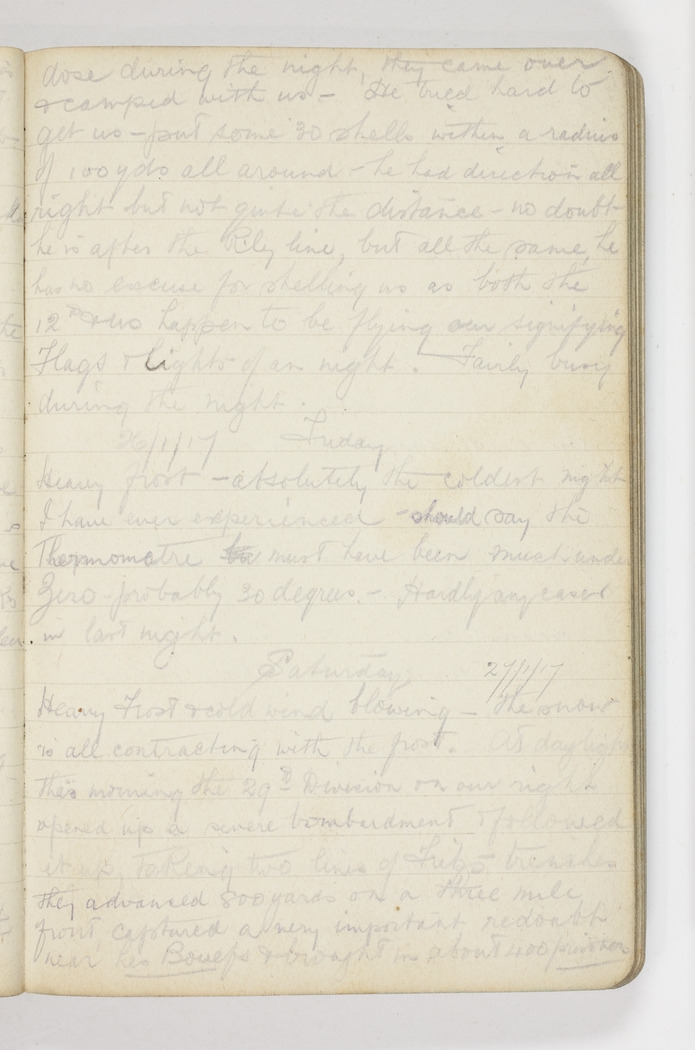 dose during the night, they came over
& camped with us - He tried hard to
get us - put some 30 shells within a radius
of 100 yds all around - he had direction all
right but not quite the distance - no doubt
he is after the Rly line, but all the same, he
has no excuse for shelling us as both the
12th & us happen to be flying our signifying
Flags & lights of an night. Fairly busy
during the night.
26/1/17 Friday
Heavy frost - absolutely the coldest night
I have ever experienced - should say the
Thermometre must have been much under
Zero - probably 30 degrees. - Hardly any cases
in last night.
Saturday 27/1/17
Heavy Frost & cold wind blowing - the snow
is all contracting with the frost. At daylight
this morning the 29th Division on our right
opened up a severe bombardment & followed
it up, taking two lines of Fritz's trenches
they advanced 800 yards on a three mile
front, captured a very important redoubt
near Les Boeufs & brought in about 400 prisoners